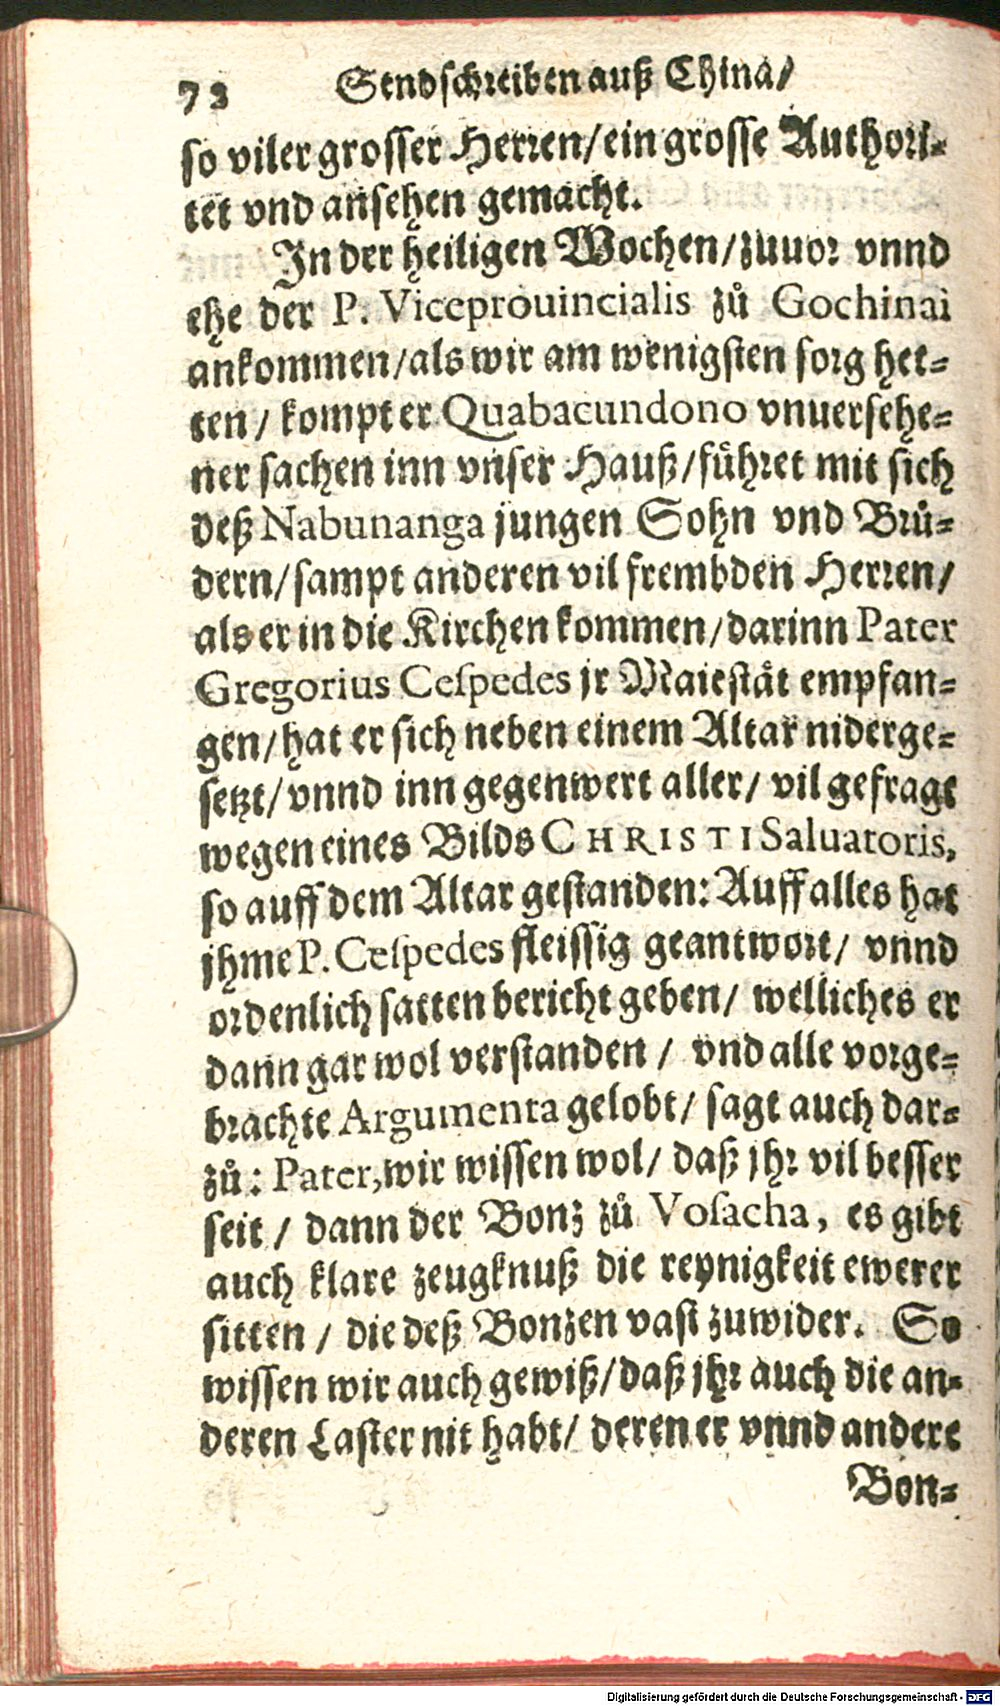 72 Sendschreiben auß China/
so viler grosser Herren/ein grosse Authori-
tet vnd ansehen gemacht.
In der heiligen Wochen/zuuor vnnd
ehe der P. Viceprouincialis zů Gochinai
ankommen/als wir am wenigsten sorg het-
ten/ kompt er Quabacundono vnuersehe-
ner sachen inn vnser Hauß/führet mit sich
deß Nabunanga jungen Sohn vnd Brů-
dern/sampt anderen vil frembden Herren/
als er in die Kirchen kommen/darinn Pater
Gregorius Ceſpedes jr Maiestät empfan-
gen/hat er sich neben einem Altar niderge-
setzt/vnnd inn gegenwert aller/ vil gefragt
wegen eines Bilds CHRISTI Saluatoris,
so auff dem Altar gestanden: Auff alles hat
jhme P. Ceſpedes fleissig geantwort/ vnnd
ordenlich satten bericht geben/ welliches er
dann gar wol verstanden / vnd alle vorge-
brachte Argumenta gelobt/ sagt auch dar-
zů: Pater, wir wissen wol/ daß jhr vil besser
seit / dann der Bonz zů Voſacha, es gibt
auch klare zeugknuß die reynigkeit ewerer
sitten / die deß Bonzen vast zuwider. So
wissen wir auch gewiß/daß jhr auch die an-
deren Laster nit habt/ deren er vnnd andere
Bon-
Digitalisierung gefördert durch die Deutsche Forschungsgemeinschaft - DFG